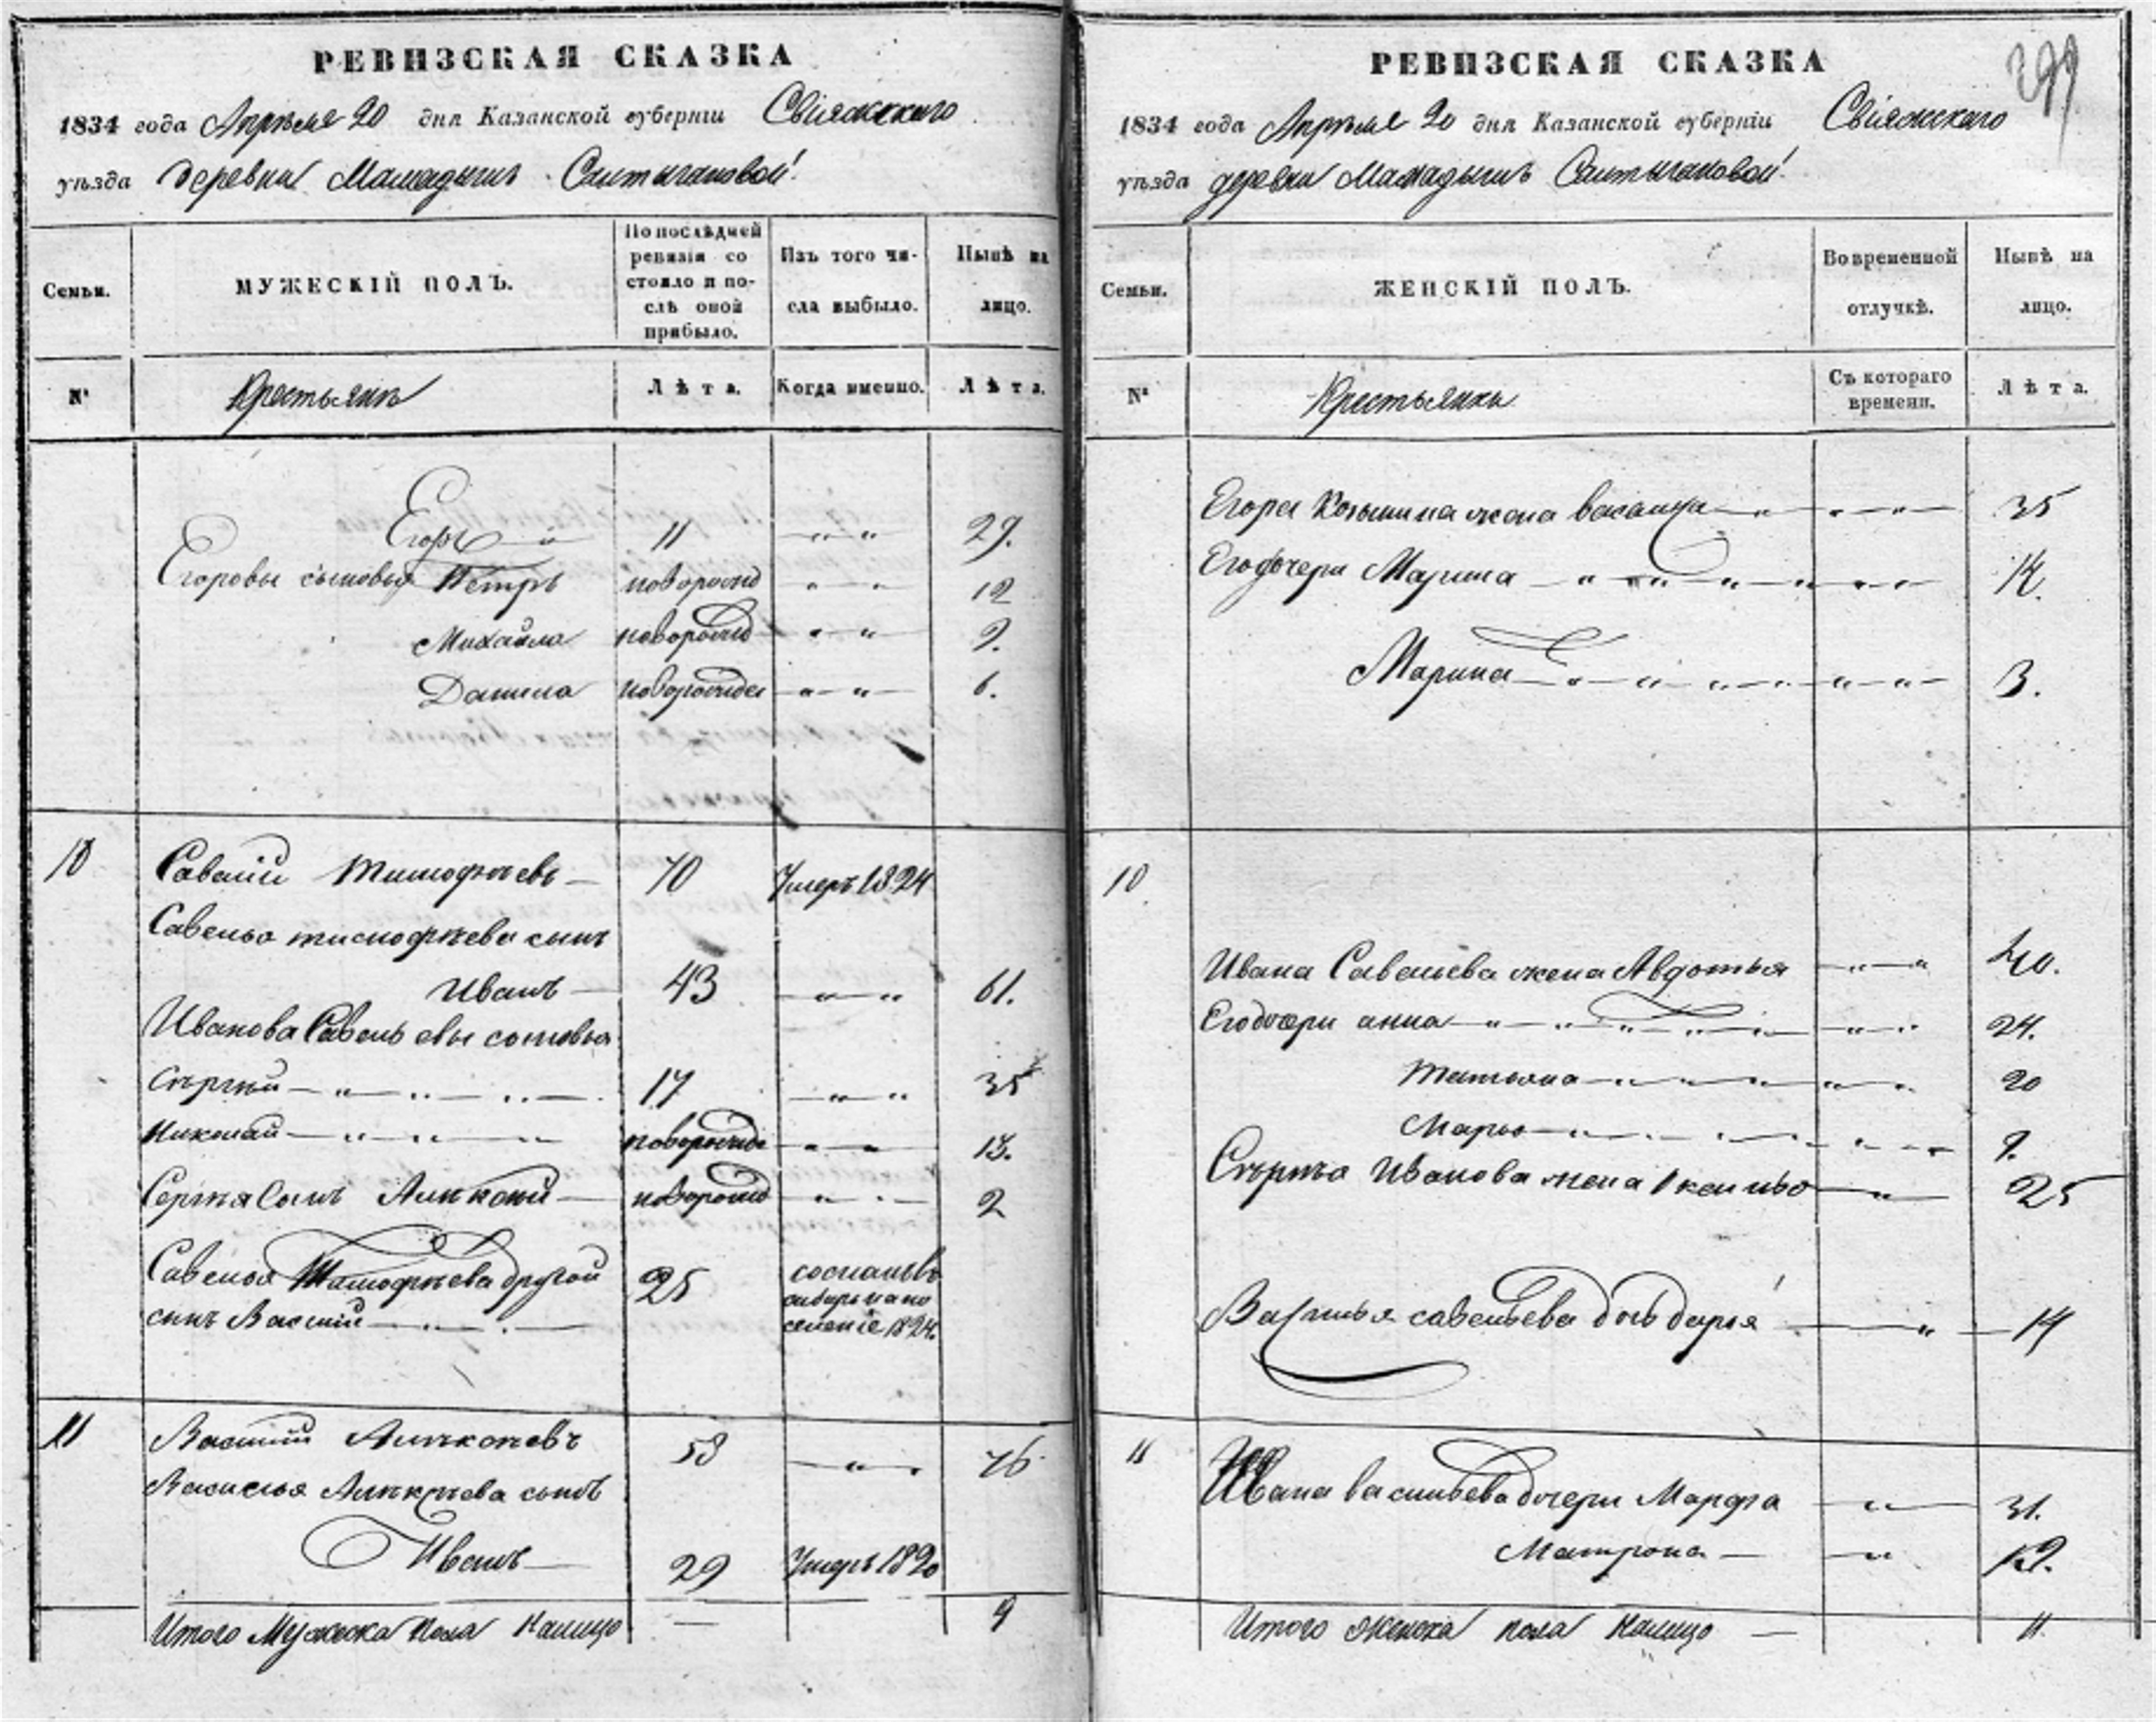 РЕВИЗСКАЯ СКАЗКА
1834 года Апреля 20 дня Казанской губерніи Свіяжскаго
уѣзда деревни Мамадышъ
Семьи.
МУЖЕСКІЙ ПОЛЪ.
По послѣдней
ревизіи со
стояло и по-
слѣ оной
прибыло.
Изъ того чи-
сла выбыло.
Нынѣ на
лицо.
№
Крестьянъ
Лѣта.
Когда именно.
Лѣта.
Егоръ 11 29.
Егоровы сыновья Петръ 12
Михайла 9.
Данила 6.
10 Савелій Тимофѣевъ 70 Умеръ 1824
Савелья тимофѣева сынъ
Иванъ 43 61.
Иванова Савельевы сыновья
Сѣргѣй 17 35
Николай 13.
Сергѣя Сынъ 2
Савелья Тимофѣева другой 25 сосланъ въ
сынъ Василій сибирь на по
селеніе 1824.
11 Василій 58 76
Василья сынъ
Иванъ 29 Умеръ 1820
Итого Мужеска пола налицо 9
РЕВИЗСКАЯ СКАЗКА
1834 года Апреля 20 дня Казанской губерніи Свіяжскаго
уѣзда деревни Мамадышъ
Семьи.
ЖЕНСКІЙ ПОЛЪ.
Во временной
отлучкѣ.
Нынѣ на
лицо.
№
Крестьянки
Съ котораго
времени.
Лѣта.
Егора жена 35
Его дочери Марина 14.
Марина 3.
10
Ивана Савельева жена Авдотья 40.
Его дочери анна 24.
Татьяна 20
Марья 9.
Сѣргѣя Иванова жена 25
Василья савельева дочь дарья 14
11 Ивана васильева дочери Марфа 31.
Матрона 19.
Итого Женска пола налицо 11